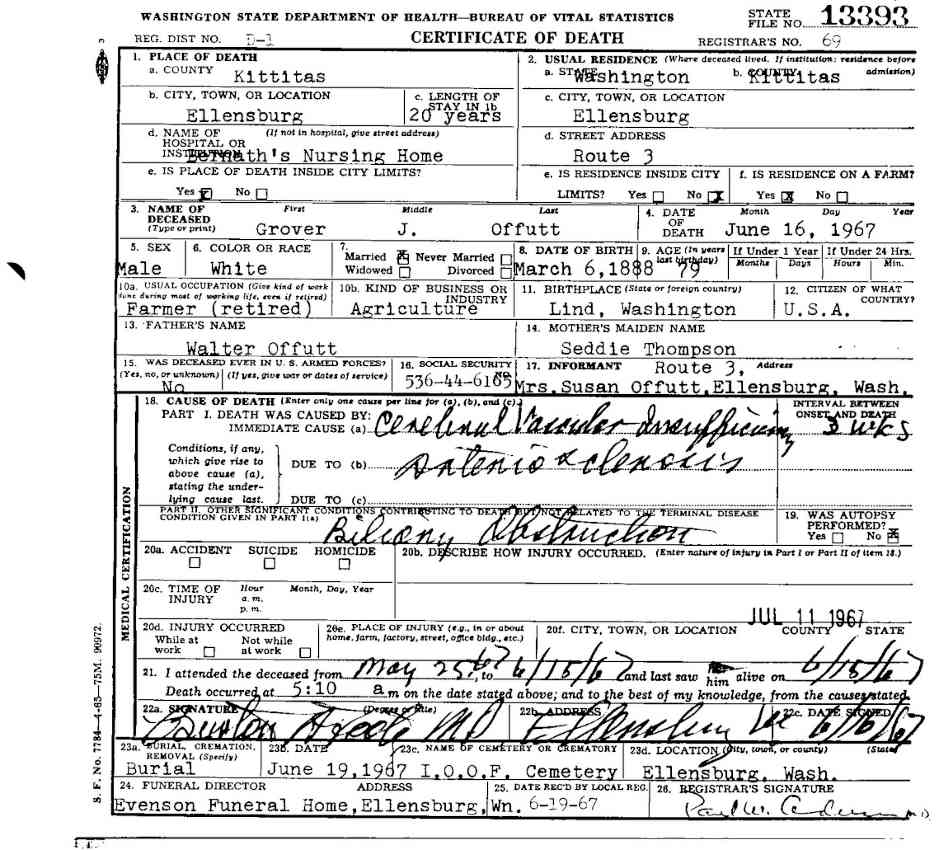 WASHINGTON STATE DEPARTMENT OF HEALTH—BUREAU OF VITAL STATISTICS
STATE FILE NO. 13393
REG. DIST NO. D-1 CERTIFICATE OF DEATH REGISTRAR'S NO. 69
1. PLACE OF DEATH 2. USUAL RESIDENCE (Where deceased lived. If institution: residence before admission)
a. COUNTY Kittitas a. STATE Washington b. COUNTY Kittitas
b. CITY, TOWN, OR LOCATION c. LENGTH OF STAY IN 1b c. CITY, TOWN, OR LOCATION
Ellensburg 20 years Ellensburg
d. NAME OF HOSPITAL OR INSTITUTION (If not in hospital, give street address) d. STREET ADDRESS
Bernath's Nursing Home Route 3
e. IS PLACE OF DEATH INSIDE CITY LIMITS? e. IS RESIDENCE INSIDE CITY LIMITS? f. IS RESIDENCE ON A FARM?
Yes No Yes No X Yes X No
3. NAME OF DECEASED (Type or print) First Middle Last 4. DATE OF DEATH Month Day Year
Grover J. Offutt June 16, 1967
5. SEX 6. COLOR OR RACE 7. Married X Never Married Widowed Divorced 8. DATE OF BIRTH 9. AGE (In years last birthday) If Under 1 Year If Under 24 Hrs.
Months Days Hours Min.
Male White March 6,1888 79
10a. USUAL OCCUPATION (Give kind of work done during most of working life, even if retired) 10b. KIND OF BUSINESS OR INDUSTRY 11. BIRTHPLACE (State or foreign country) 12. CITIZEN OF WHAT COUNTRY?
Farmer (retired) Agriculture Lind, Washington U.S.A.
13. FATHER'S NAME 14. MOTHER'S MAIDEN NAME
Walter Offutt Seddie Thompson
15. WAS DECEASED EVER IN U. S. ARMED FORCES? 16. SOCIAL SECURITY 17. INFORMANT Route 3, Address
(Yes, no, or unknown) (If yes, give war or dates of service)
No 536-44-6165 Mrs.Susan Offutt,Ellensburg, Wash.
18. CAUSE OF DEATH (Enter only one cause per line for (a), (b), and (c).) INTERVAL BETWEEN ONSET AND DEATH
PART I. DEATH WAS CAUSED BY:
IMMEDIATE CAUSE (a) Cerebral Vascular Insufficiency 3 wks
Conditions, if any, which give rise to above cause (a), stating the underlying cause last.
DUE TO (b) Arteriosclerosis
DUE TO (c)
PART II. OTHER SIGNIFICANT CONDITIONS CONTRIBUTING TO DEATH BUT NOT RELATED TO THE TERMINAL DISEASE CONDITION GIVEN IN PART I(a)
Biliary Obstruction
19. WAS AUTOPSY PERFORMED? Yes No X
20a. ACCIDENT SUICIDE HOMICIDE 20b. DESCRIBE HOW INJURY OCCURRED. (Enter nature of injury in Part I or Part II of item 18.)
20c. TIME OF INJURY Hour a. m. p. m. Month, Day, Year
JUL 11 1967
20d. INJURY OCCURRED While at work Not while at work 20e. PLACE OF INJURY (e.g., in or about home, farm, factory, street, office bldg., etc.) 20f. CITY, TOWN, OR LOCATION COUNTY STATE
21. I attended the deceased from May 25 67, to 6/15/67 and last saw him alive on 6/15/67
Death occurred at 5:10 a m on the date stated above; and to the best of my knowledge, from the causes stated.
22a. SIGNATURE (Degree or title) 22b. ADDRESS 22c. DATE SIGNED
M D Ellensburg 6/16/67
23a. BURIAL, CREMATION, REMOVAL (Specify) 23b. DATE 23c. NAME OF CEMETERY OR CREMATORY 23d. LOCATION (City, town, or county) (State)
Burial June 19,1967 I.O.O.F. Cemetery Ellensburg, Wash.
24. FUNERAL DIRECTOR ADDRESS 25. DATE REC'D BY LOCAL REG. 26. REGISTRAR'S SIGNATURE
Evenson Funeral Home,Ellensburg,Wn. 6-19-67
MEDICAL CERTIFICATION
S. F. No. 7784-4-65-75M. 99972.